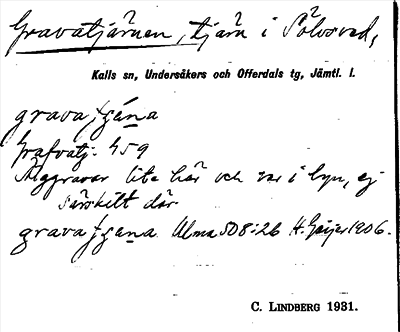 Gravatjärnen, tjärn i Sölvsved,
Kalls sn, Undersåkers och Offerdals tg, Jämtl. l.
gravatjǻna
Grafvatj: 459
Älggravar lite här och var i byn, ej
särskilt där.
gravatjǻna Ulma 508:26 H. Geijer 1906.
C. LINDBERG 1931.